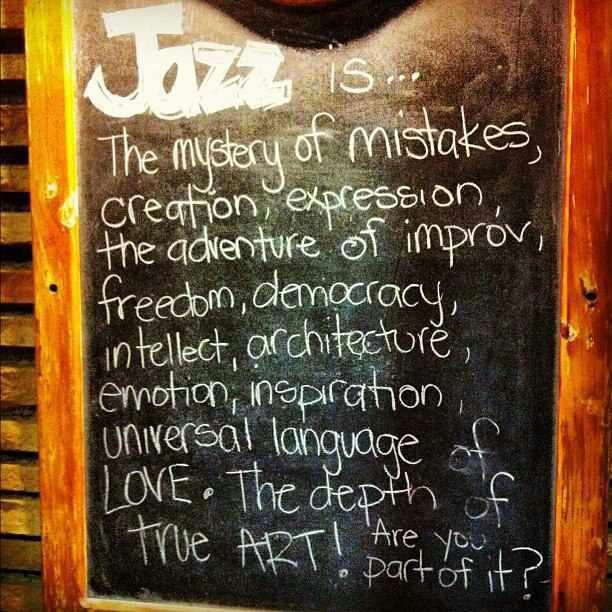 Jazz is...
The mystery of mistakes,
creation, expression,
the adventure of improv,
freedom, democracy,
intellect, architecture,
emotion, inspiration,
universal language of
LOVE. The depth of
true ART! Are you
part of it?